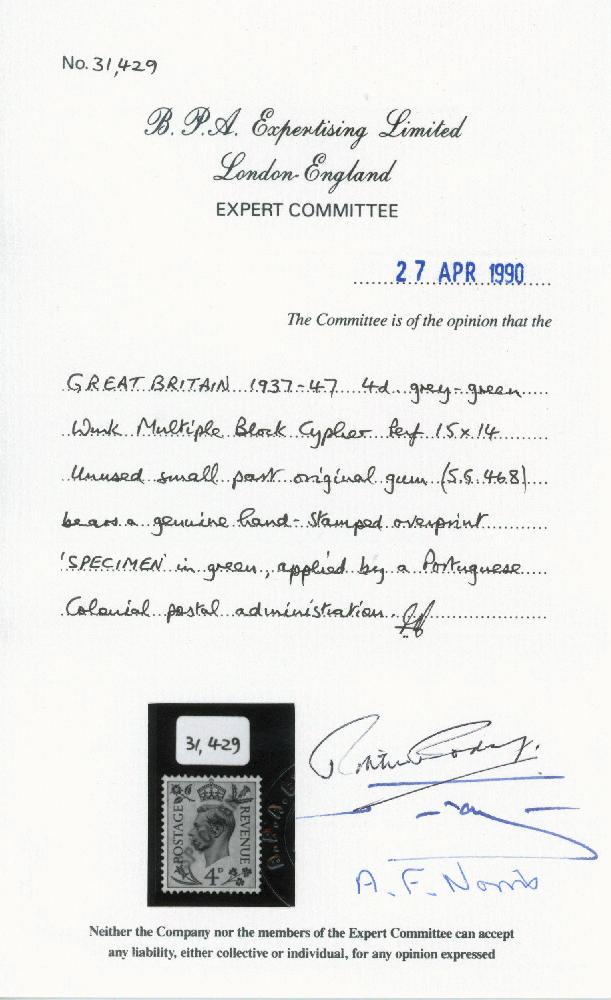 No. 31,429
B. P.A. Expertising Limited
London-England
EXPERT COMMITTEE
27 APR 1990
The Committee is of the opinion that the
GREAT BRITAIN 1937-47 4d. grey-green
Wmk Multiple Block Cypher Perf 15x14
Unused small part original gum (S.G.468)
bears a genuine hand-stamped overprint
'SPECIMEN' in green, applied by a Portuguese
Colonial postal administration.
31,429
POSTAGE
REVENUE
4D
A. F. Norris
Neither the Company nor the members of the Expert Committee can accept
any liability, either collective or individual, for any opinion expressed